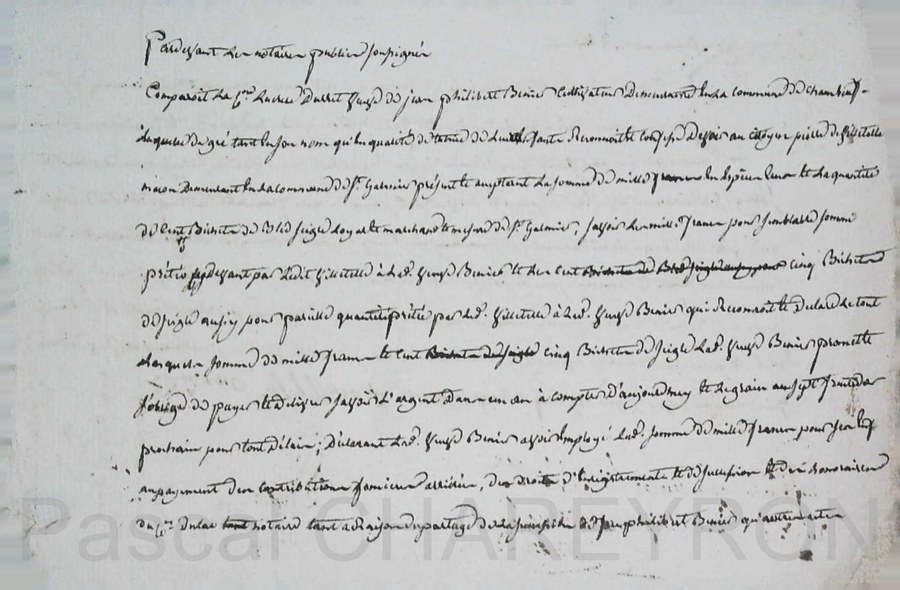 Pardevant les notaires publics soussignés
Comparoit la Cne. Lucrece Duboit veuve de jean philibert Benier Cultivateur Demeurante en la commune de chambœuf
Laquelle de gré tant en son nom qu'en qualité de tutrice de Reconnoit et confesse Devoir au citoyen pierre de Villetelle
macon Demeurant en la commune de St. Galmier présent et acceptant la somme de mille francs En Espèces Sonor et la quantité
de Cent Bichets de Bled Seigle Loyal et marchand et mesure de St. Galmier ; savoir Les mille francs pour semblable somme
prêtés cy devant par Ledit Villetelle à Lad. veuve Benier et Les Cent Bichets de Bled Seigle cinq Bichets
de seigle aussy pour pareille quantité prêtée par Led. Villetelle à Lad. veuve Benier qui Reconnoit et declare Le tout
Lesquels somme de mille francs et Cent Bichets de Seigle cinq Bichets de Seigle Lad. veuve Benier promet et
s'oblige de payer et delivrer savoir L'argent Dans un an à compter D'aujourdhuy et Le grain au sept fructidor
prochain pour tout Délai ; Déclarant Lad. veuve Benier avoir Employé Lad. somme de mille francs pour
au payement des Contributions foncieres arriérées, des droits d'Enregistrements et de succession et des honoraires
du Cn. Dulac tant notaire tant à Raison du partage de la succession de jean philibert Benier qu'autres actes
Pascal CHAREYRON